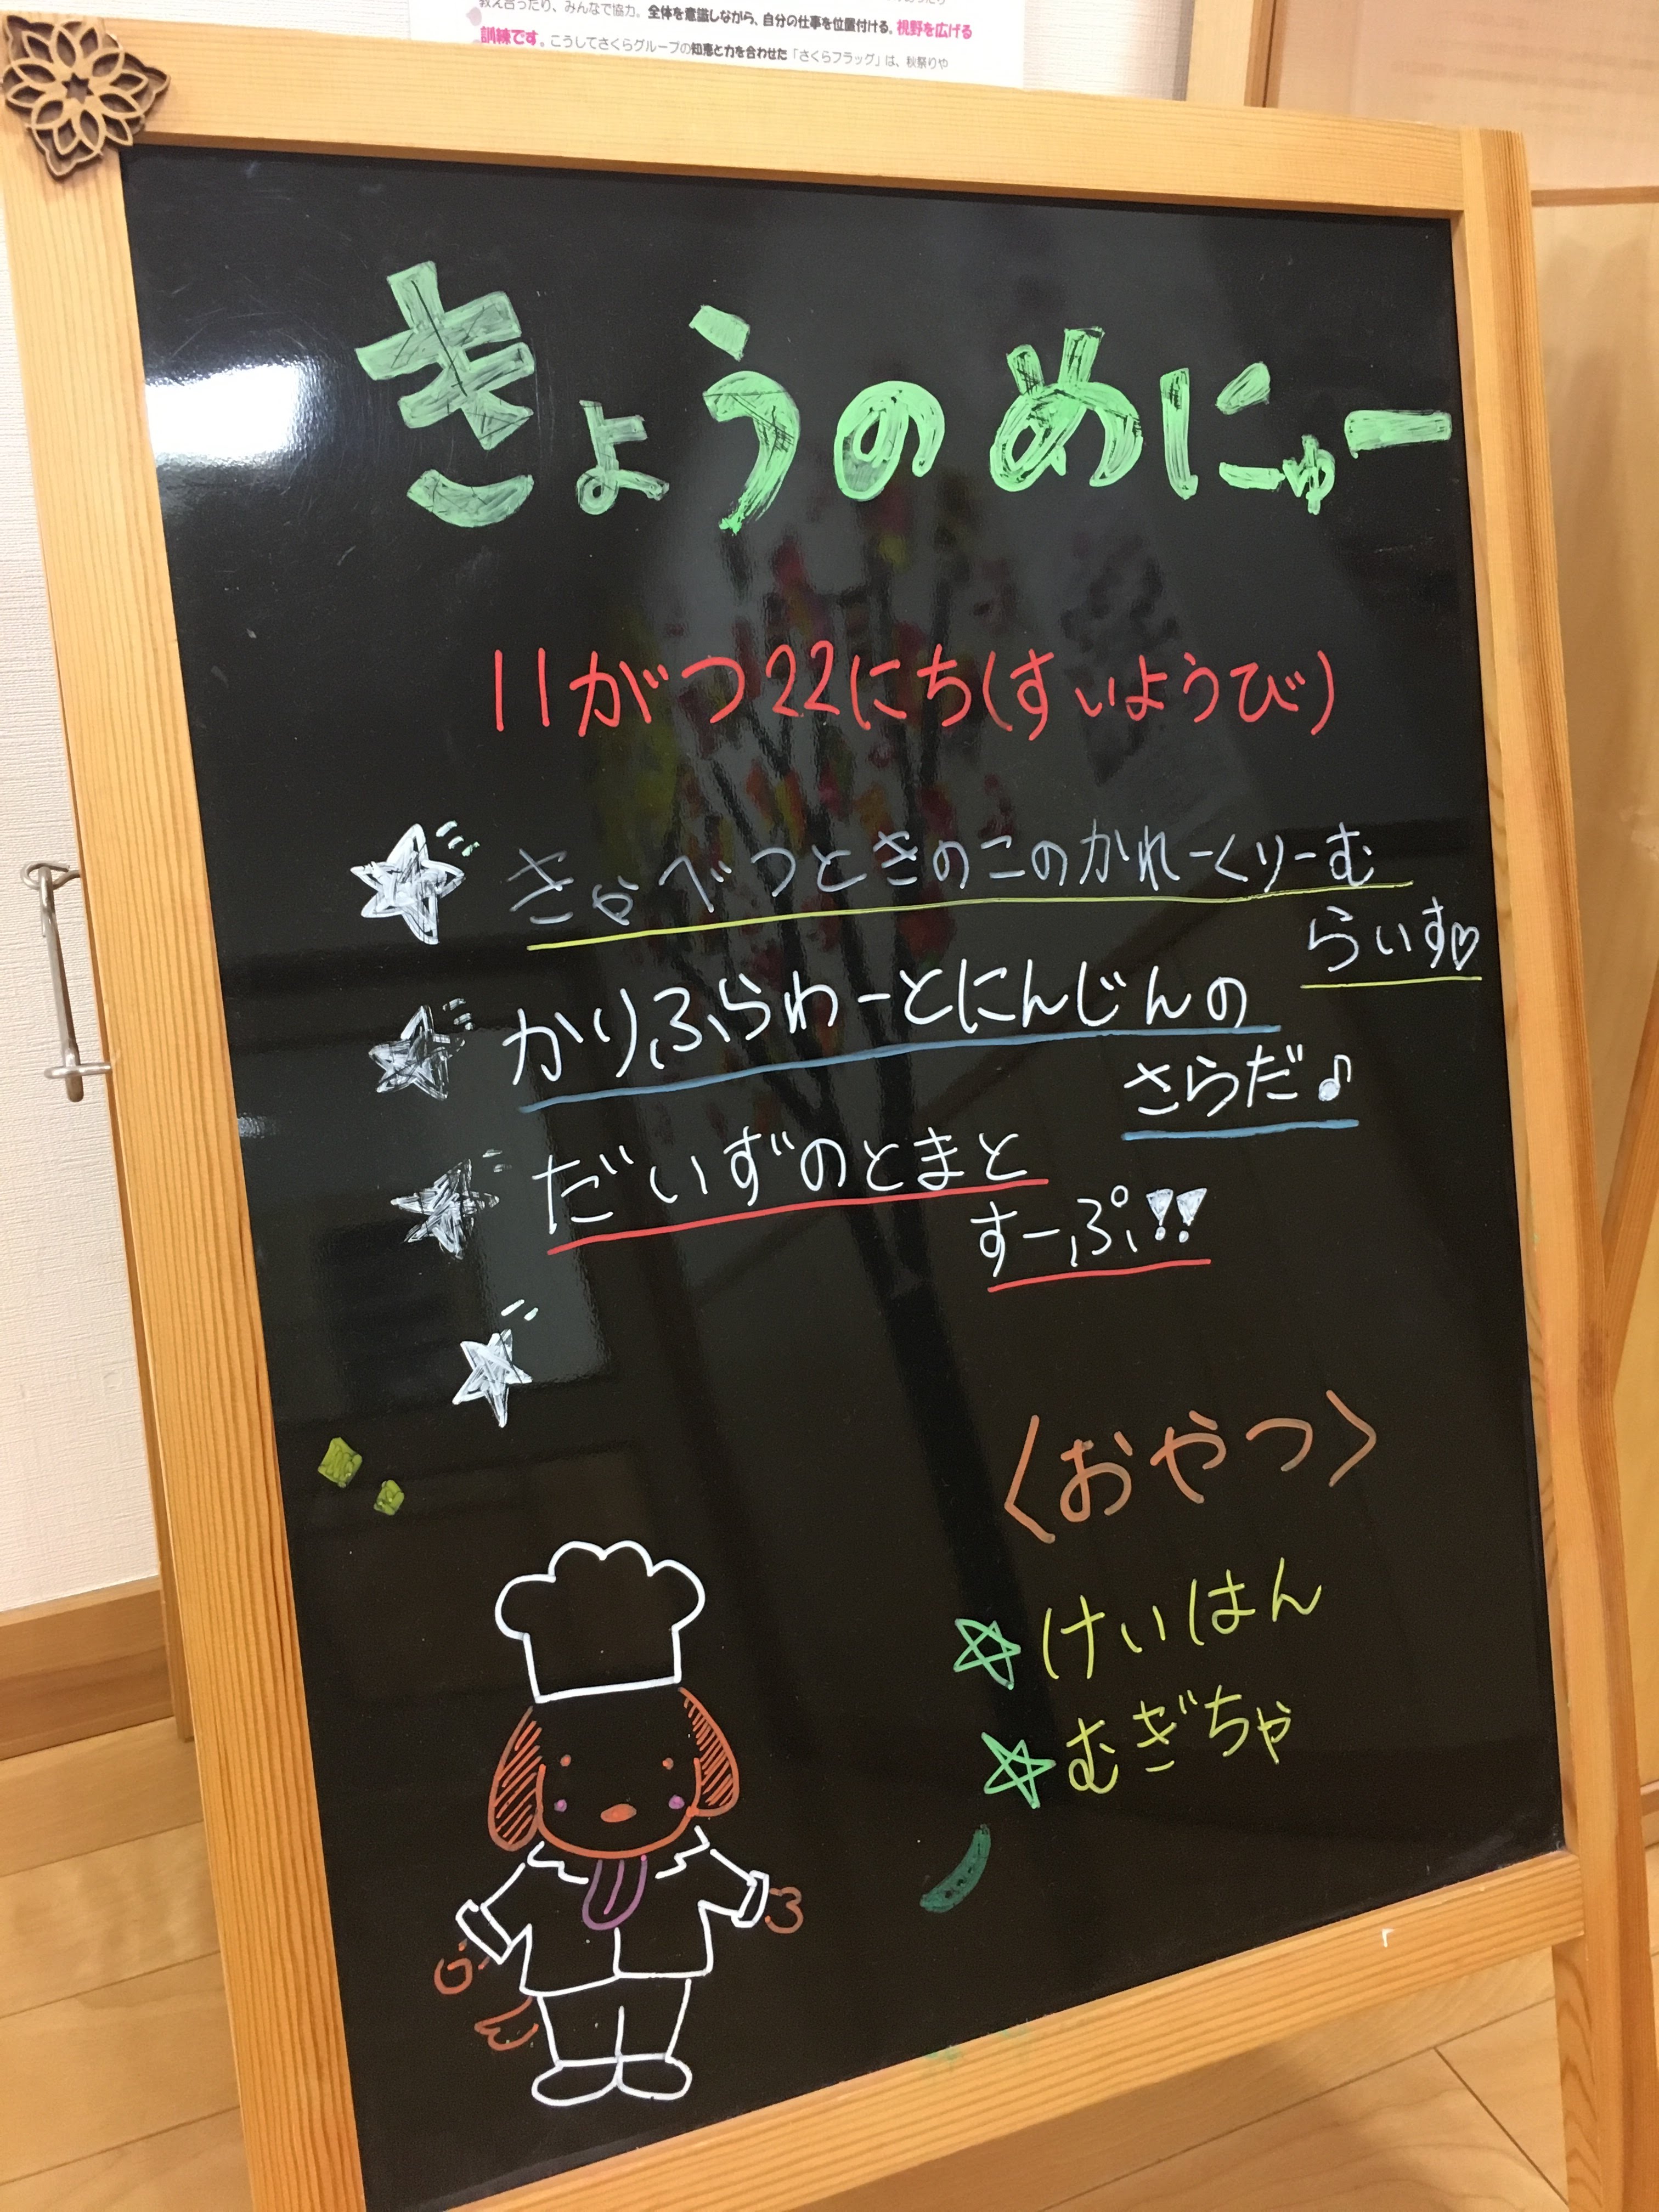 教え合ったり、みんなで協力。全体を意識しながら、自分の仕事を位置付ける。視野を広げる
訓練です。こうしてさくらグループの知恵と力を合わせた「さくらフラッグ」は、秋祭りや
きょうのめにゅー
11がつ22にち(すいようび)
きゃべつときのこのかれーくりーむ
らいす♡
かりふらわーとにんじんの
さらだ♪
だいずのとまと
すーぷ!!
〈おやつ〉
☆けいはん
☆むぎちゃ